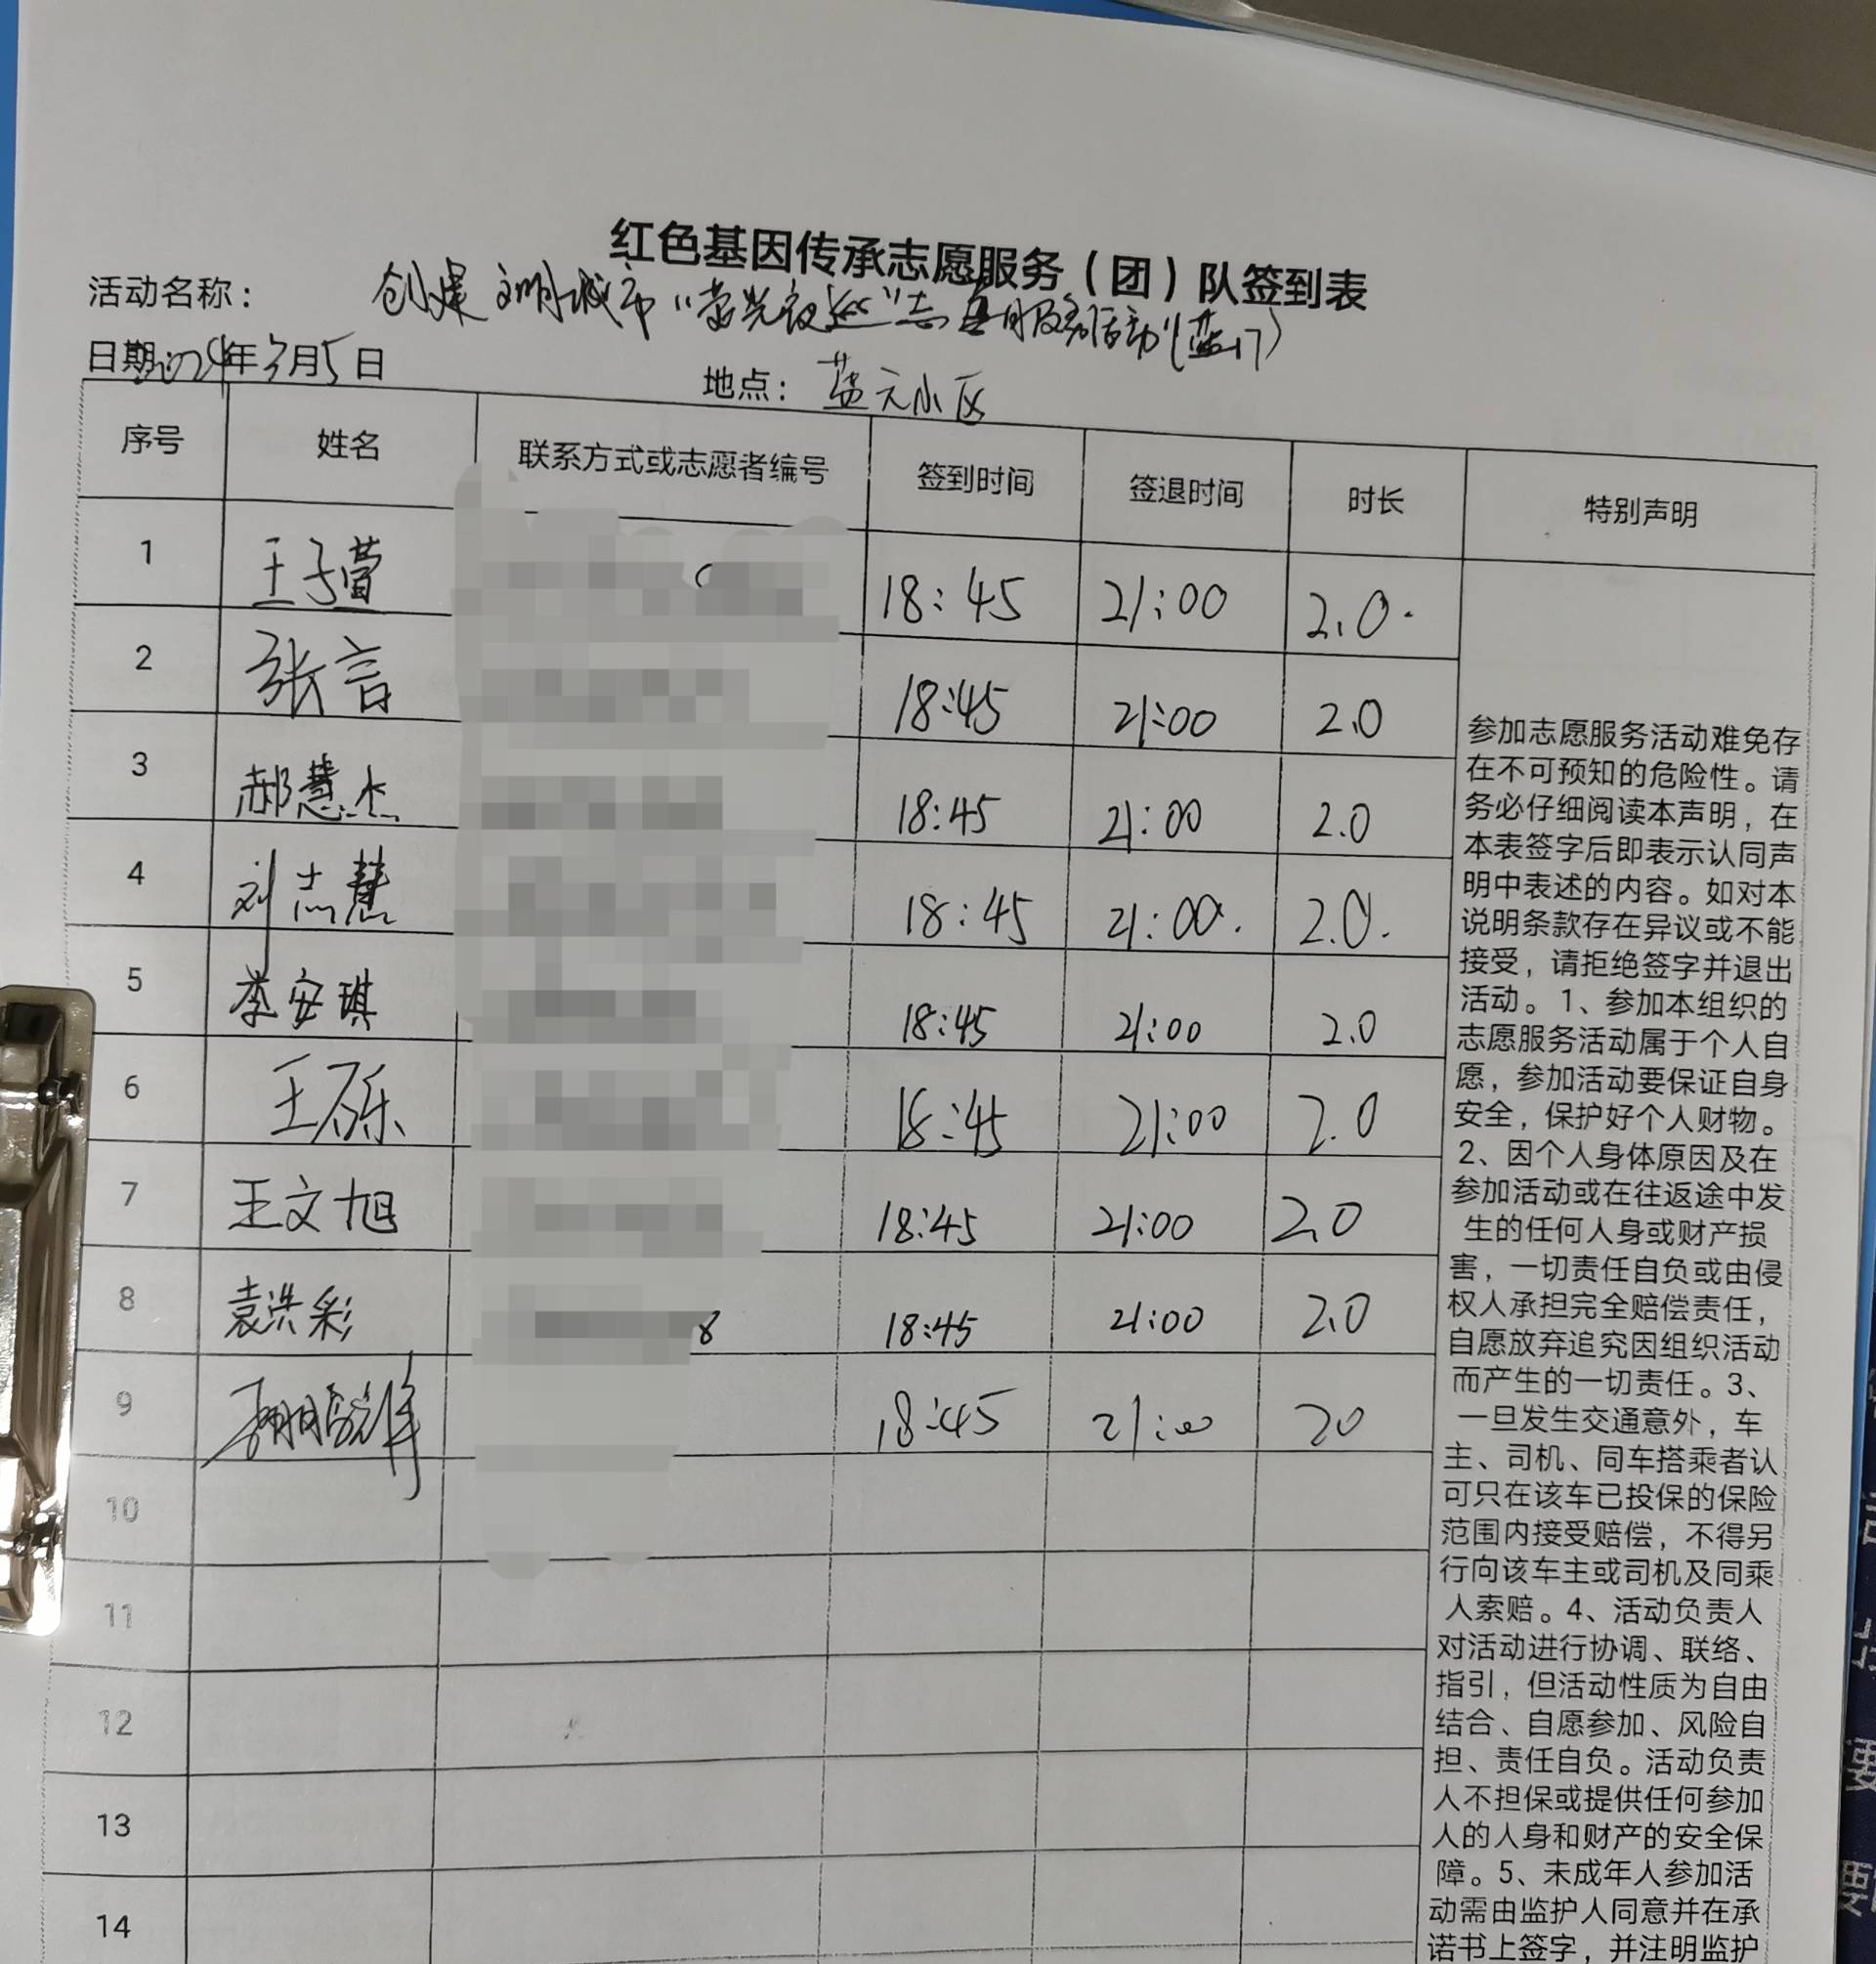 红色基因传承志愿服务（团）队签到表
活动名称： 创建文明城市“萤光夜巡”志愿服务活动（蓝17）
日期：2024年3月5日 地点：蓝天小区
序号 姓名 联系方式或志愿者编号 签到时间 签退时间 时长 特别声明
1 王子萱 18:45 21:00 2.0.
2 张言 18:45 21:00 2.0
3 郝慧杰 18:45 21:00 2.0
4 刘志慧 18:45 21:00. 2.0.
5 李安琪 18:45 21:00 2.0
6 王砾 18:45 21:00 2.0
7 王文旭 18:45 21:00 2.0
8 袁洪彩 8 18:45 21:00 2.0
9 18:45 21:00 20
10
11
12
13
14
参加志愿服务活动难免存
在不可预知的危险性。请
务必仔细阅读本声明，在
本表签字后即表示认同声
明中表述的内容。如对本
说明条款存在异议或不能
接受，请拒绝签字并退出
活动。1、参加本组织的
志愿服务活动属于个人自
愿，参加活动要保证自身
安全，保护好个人财物。
2、因个人身体原因及在
参加活动或在往返途中发
生的任何人身或财产损
害，一切责任自负或由侵
权人承担完全赔偿责任，
自愿放弃追究因组织活动
而产生的一切责任。3、
一旦发生交通意外，车
主、司机、同车搭乘者认
可只在该车已投保的保险
范围内接受赔偿，不得另
行向该车主或司机及同乘
人索赔。4、活动负责人
对活动进行协调、联络、
指引，但活动性质为自由
结合、自愿参加、风险自
担、责任自负。活动负责
人不担保或提供任何参加
人的人身和财产的安全保
障。5、未成年人参加活
动需由监护人同意并在承
诺书上签字，并注明监护
要